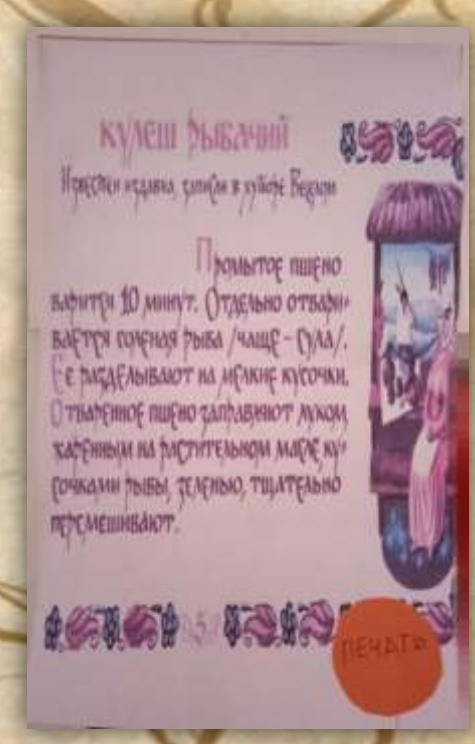 КУЛЕШ РЫБАЧИЙ
Известен издавна, записан в хуторе Веселом
Промытое пшено
варится 10 минут. Отдельно отвари-
вается соленая рыба /чаще – сула/.
Её разделывают на мелкие кусочки.
Отваренное пшено заправляют луком,
жаренным на растительном масле, ку-
сочками рыбы, зеленью, тщательно
перемешивают.
5
ПЕЧАТЬ